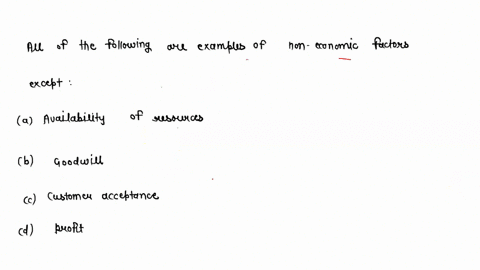 All of the following are examples of non-economic factors
except :
(a) Availability of resources
(b) Goodwill
(c) Customer acceptance
(d) profit